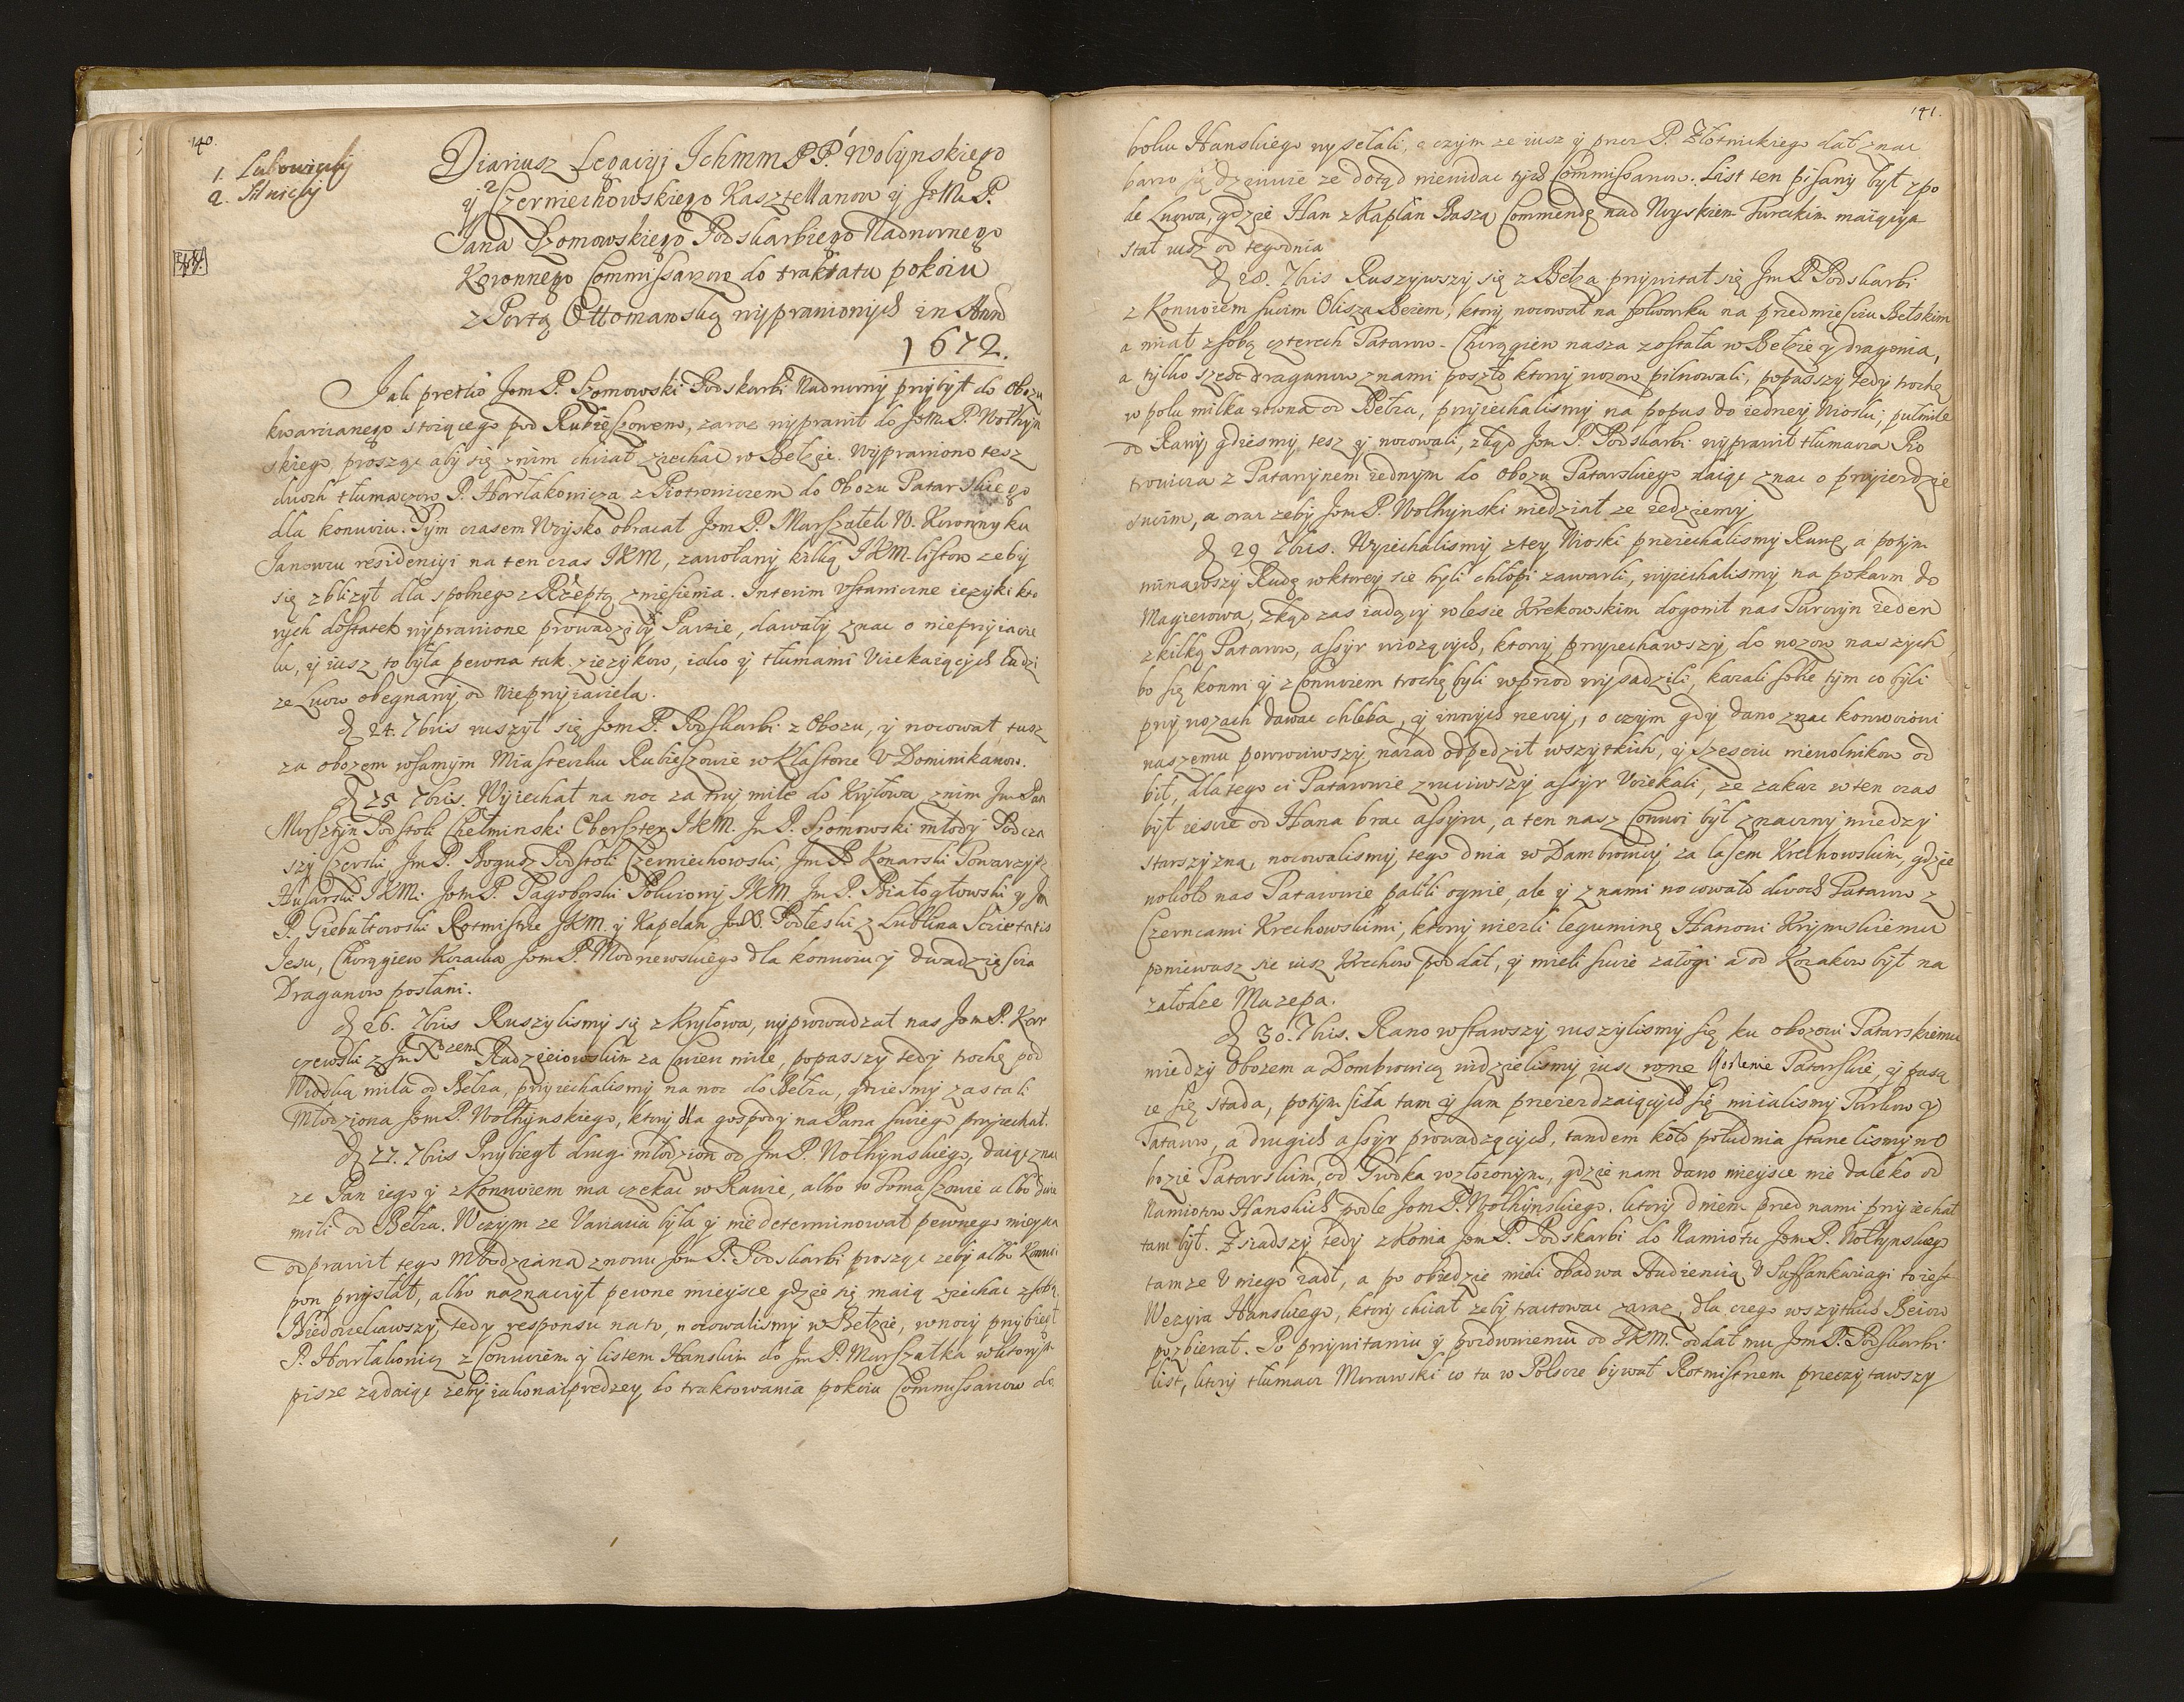 140.
1. Lubowicky
2. Silnicky
44.
Diariusz Legacyj Ichmm PP.¹ Wołynskiego
y ² Czerniechowskiego Kasztellanow y JeM P.
Jana Szomowskiego Podskarbiego Nadwornego
Koronnego Commissarzow do traktatu pokoiu
z Portą Ottomanską wyprawionych in Anno
1672.
Jak prętko Jem P. Szomowski Podskarbi Nadworny przybył do Obozu
kwarcianego stoiącego pod Rubieszowem, zaraz wyprawił do JeM P. Wołhyn
skiego, prosząc aby się znim chciał ziechac w Bełzie. Wyprawiono tesz
dwoch tłumaczow P. Hartakowicza z Piotrowiczem do Obozu Tatarskiego
dla konwoiu. Tym czasem Woysko obracał Jem P. Marszałek W. Koronny ku
Janowcu residencyi na ten czas JKM, zawołany kilką JKM. listow zeby
się zblizył dla spolnego z Rzeptą zniesienia. Interim ustawiczne ięzyki kto
rych dostatek wyprawione prowadziły Partie, dawały znac o nieprzyiacie
lu, y iusz to była pewna tak z ięzykow, iako y tłumami Uciekaiących ludzi
ze Lwow obegnany od Nieprzyiaciela.
D. 24. 7bris ruszył się Jem P. Podskarbi z Obozu, y nocował tusz
za obozem w samym Miasteczku Rubieszowie w Klastorze U Dominikanow.
D. 25 7bris. Wyiechał na noc za trzy mile do Kryłowa znim Jm Pan
Morsztyn Podstoli Chełminski Oberszter JKM. Jm P. Szomowski młody Podcza
szy Czerski Jm P. Bogusz Podstoli Czerniechowski, Jm P. Konarski Towarzysz
Husarski JKM. Jem P. Zagoborski Pokoiowy JKM Jm P. Białogłowski y Jm
P. Giebułtowski Rotmistrz JKM. y Kapelan Jm X. Podleski z Lublina Societatis
Jesu, Chorągiew Kozacka Jem P. Modrzewskiego dla konwoiu y dwadziescia
Draganow posłani.
D. 26. 7bris Ruszylismy się z Kryłowa, wyprowadzał nas Jem P. Kar
czewski z Jm Xdzem Radzieiowskim za cwierc mile, popasszy tedy trochę pod
Wodką milą od Bełza, przyiechalismy na noc do Bełza, gdziesmy zastali
Młodziona Jem P. Wołhynskiego, ktory dla gospody na Pana swiego przyiechał.
D. 27. 7bris Przybiegł drugi młodzion od Jm P. Wołhynskiego, daiąc znac
ze Pan iego y z Konwoiem ma czekac w Rawie, albo w Tomaszowie albo dwie
mili od Bełza. W czym ze Variatia była y nie determinował pewnego mieysca
odprawił tego Młodziana znowu Jem P. Podskarbi prosząc zeby albo Konwoi
pon przysłał, albo naznaczył pewne mieysce gdzie się maią ziechac z sobą
Niedoczekawszy tedy responsu na to, nocowalismy w Bełzie, w nocy przybiegł
P. Hartakowicz z Conwoiem y listem Hanskim do Jm P. Marszałka w ktorym
pisze ządaiąc zeby iakonaiprędzey do traktowania pokoiu Commissarzow do
141.
boku Hanskiego wysełali, o czym ze iusz y przez P. Złotnickiego dał znac
barzo się dziwuie ze dotąd niewidac tych Commissarzow. List ten pisany był z po
de Lwowa, gdzie Han z Kaplan Baszą Commendę nad Woyskiem Tureckim maiącym
stał iusz od tegodnia
D. 28. 7bris Ruszywszy się z Bełza przywitał się Jm P. Podskarbi
z Konwoiem swim Olisza Beiem, ktory nocował na folwarku na przedmiesciu Bełskim
a miał z sobą czterech Tatarow. Chorągiew nasza została w Bełzie y dragonia,
a tylko szesc draganow z nami poszło ktory wozow pilnowali, popasszy tedy trochę
w polu milka rowna od Bełza, przyiechalismy na popas do iedney Wioski pułmile
od Rawy gdziesmy tesz y nocowali, ztąd Jem P. Podskarbi wyprawił tłumacza Pio
trowicza z Tatarzynem iednym do Obozu Tatarskiego daiąc znac o przyiezdzie
swim, a oraz zeby Jem P. Wołhynski wiedział ze iedziemy
D. 29 7bris. Wyiechalismy z tey Wioski przeiechalismy Rawę, a potym
minąwszy Rudę w ktorey się byli chłopi zawarli, wyiechalismy na pokarm do
Magierowa, zkąd zas iadący w lesie Krekowskim dogonił nas Turczyn ieden
z kilką Tatarow, assyr wiozących, ktory przyiechawszy do wozow naszych
bo się konni y z Conwoiem trochę byli w przod wysadzili, kazali sobie tym co byli
przy wozach dawac chleba, y innych rzeczy, o czym gdy dano znac konwoiowi
naszemu powrociwszy nazad odpędził wszytkich, y szesciu niewolnikow od
bił, dla tego ci Tatarowie zruciwszy assyr Uciekali, ze zakaz w ten czas
był iescze od Hana brac assyru, a ten nasz Conwoi był znaczny miedzy
starszyzną, nocowalismy tego dnia w Dambrowicy za lasem Krechowskim, gdzie
wokoło nas Tatarowie palili ognie, ale y z nami nocowało dwoch Tatarow z
Czerncami Krechowskimi, ktory wiezli leguminę Hanowi Krymskiemu
poniewasz się iusz Krechow poddał, y mieli swie załogi a od Kozakow był na
załodze Mazepa.
D. 30. 7bris. Rano wstawszy ruszylismy się ku obozowi Tatarskiemu
miedzy Obozem a Dombrowicą widzielismy iusz rozne Tatarskie, y pasą
ce się stada, potym siła tam y sam przeiezdzaiących się miialismy Turkow y
Tatarow, a drugich assyr prowadzących, tandem koło południa stanelismy w O
bozie Tatarskim, od Grodka rozłozonym, gdzie nam dano mieysce nie daleko od
Namiotow Hanskich podle Jem P. Wołhynskiego. ktory dniem przed nami przyiechał
tam był. Zsiadszy tedy z Konia Jem P. Podskarbi do Namiotu Jem P. Wołhynskiego
tamze U niego iadł, a po obiedzie mieli obadwa Audiencią U Saffankaziagi to iest
Wezyra Hanskiego, ktory chciał zeby tractowac zaraz, dla czego wszytkich Beiow
pozbierał. Po przywitaniu y pozdrowieniu od JKM. oddał mu Jem P. Podskarbi
list, ktory tłumacz Morawski co tu w Polscze bywał Rotmistrzem przeczytawszy